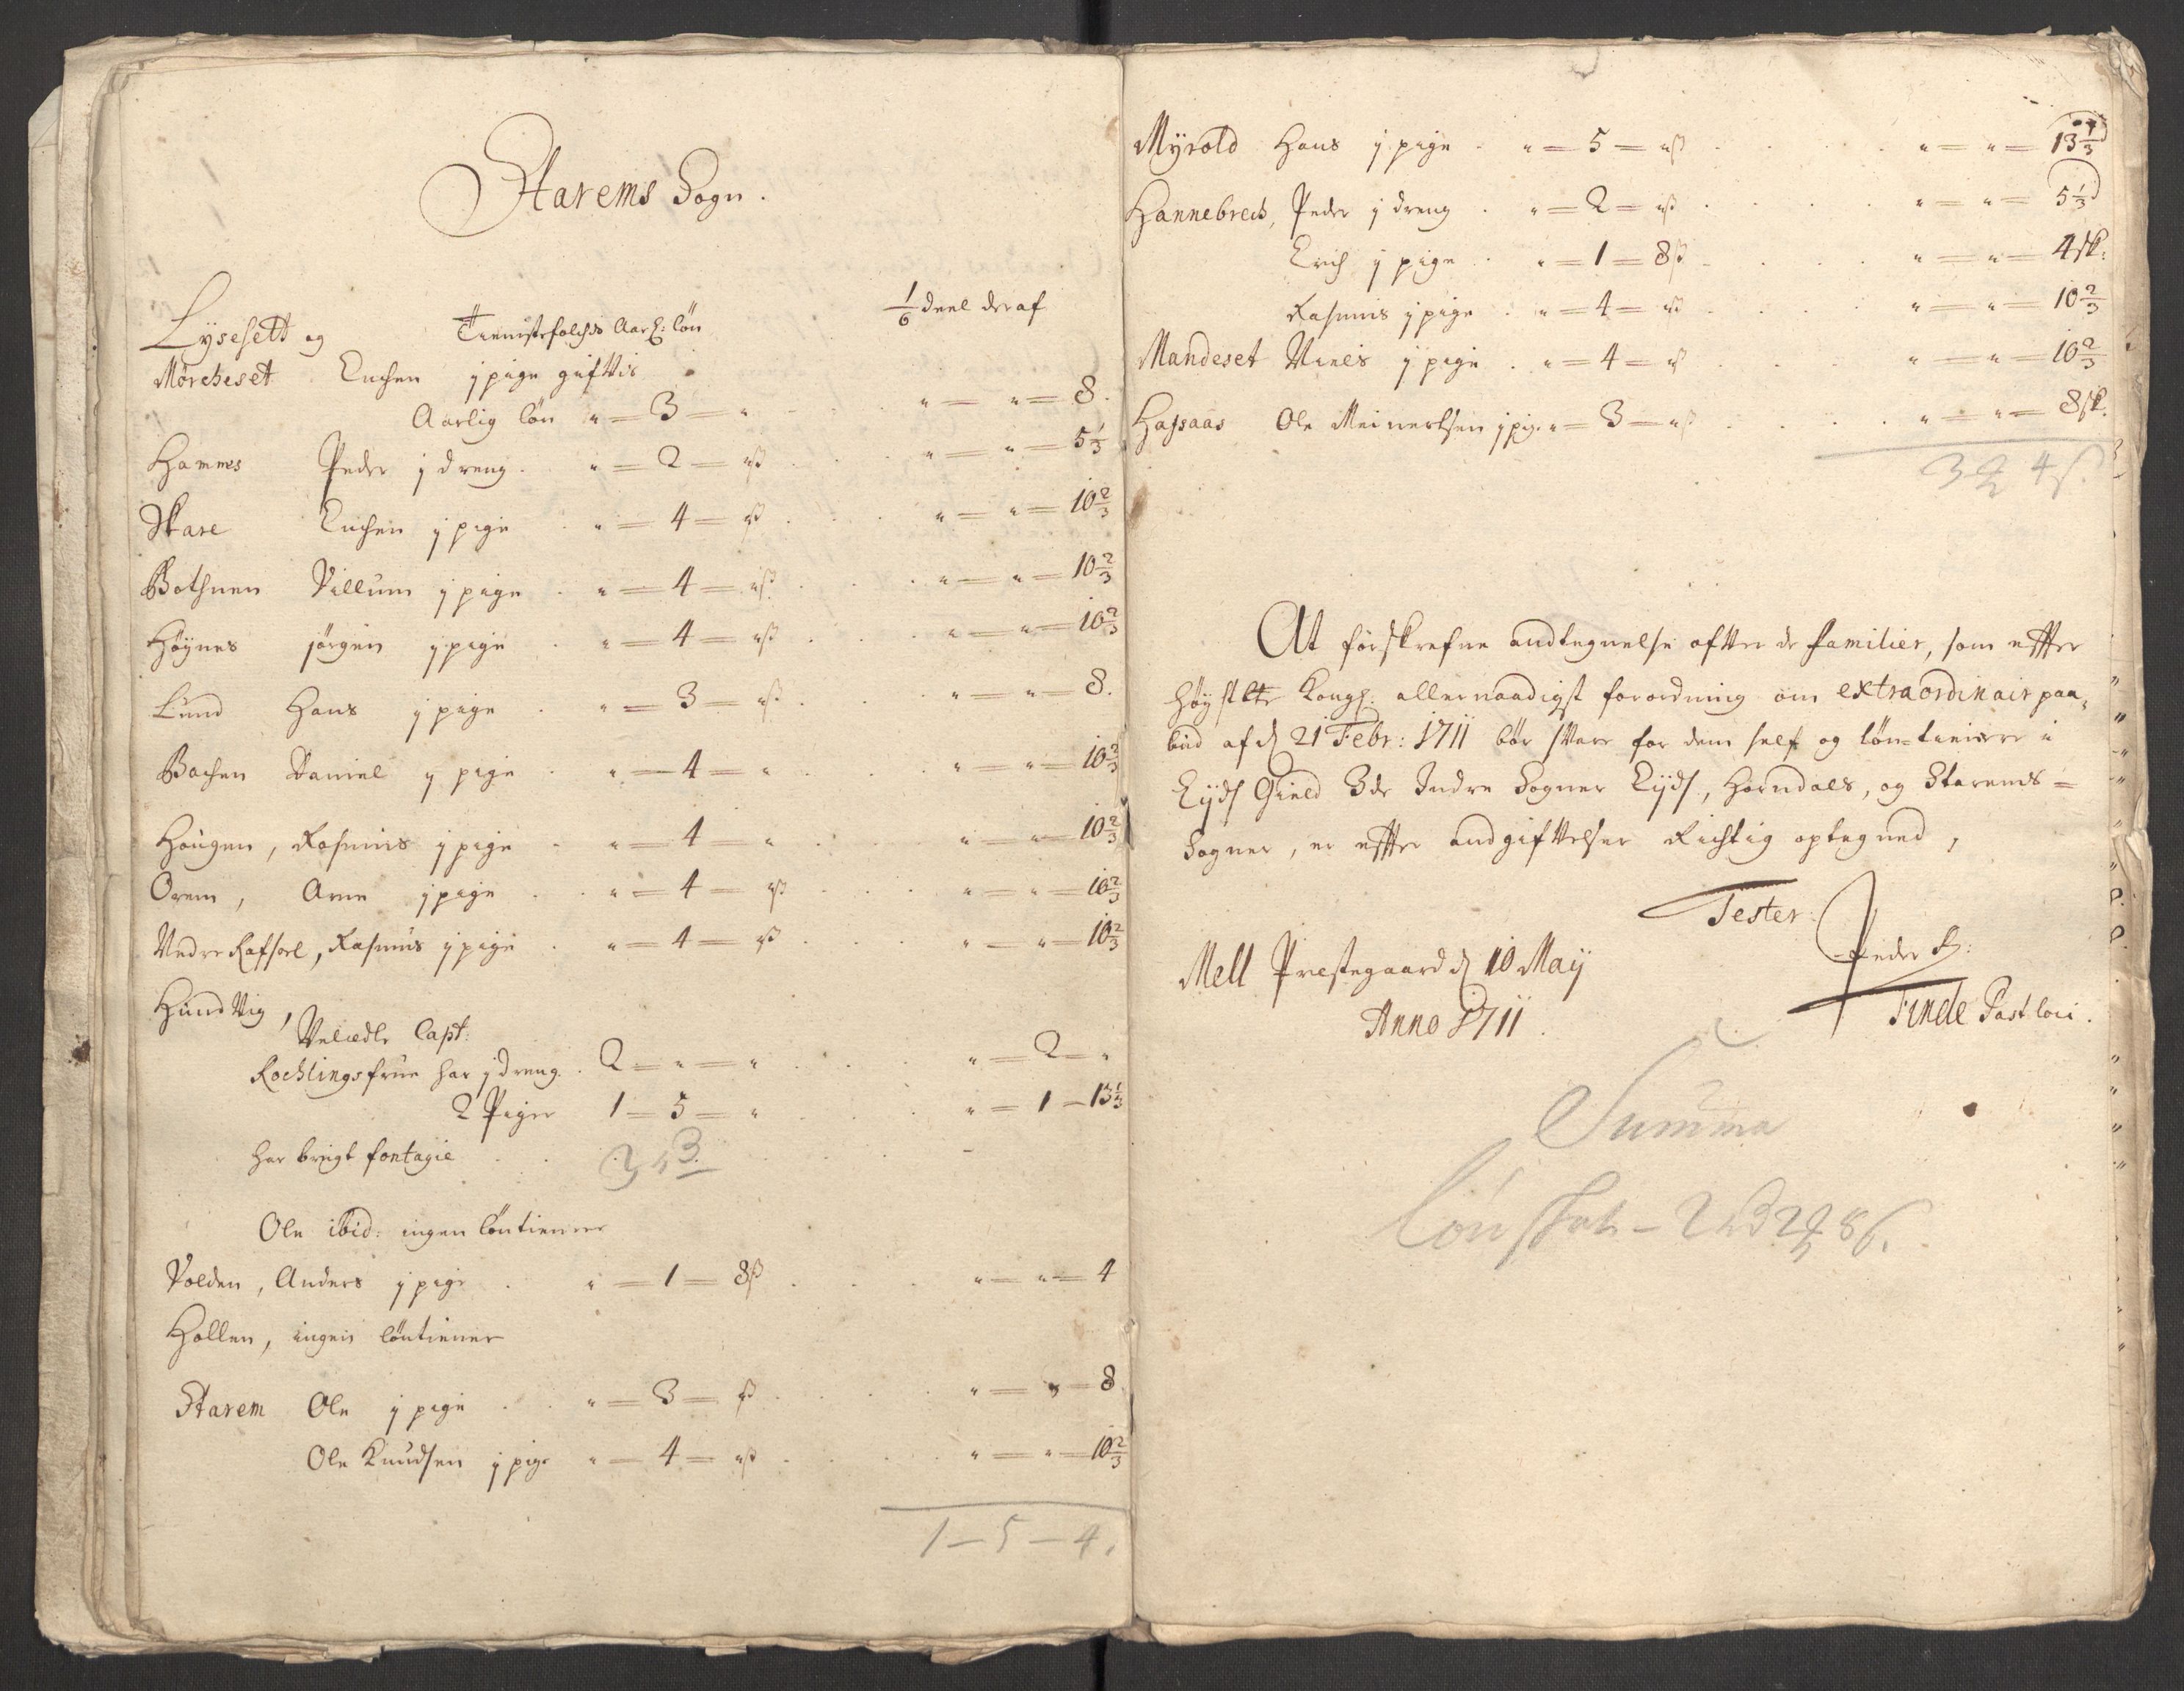 Starems Sogn.
Lysesett og Tienistefolchs Aarl: løn 1/6 deel deraf
Mørcheset Enchen j pige gifttis
Aarlig løn " = 3 = " " = " = 8.
Hammes Peder j dreng. " = 2 = "ß " = " = 5 1/3
Skare Enchen j pige " = 4 = "ß " = " = 10 2/3
Bothnen Villum j pige " = 4 = "ß " = " = 10 2/3
Høÿnes jørgen j pige " = 4 = "ß " = " = 10 2/3
Lund Hans j pige " = 3 = "ß " = " = 8.
Bachen Daniel j pige " = 4 = " " = " = 10 2/3
Hougen, Rasmus j pige " = 4 = " " = " = 10 2/3
Orem, Arne j pige " = 4 = "ß " = " = 10 2/3
Nedre Rafsoel, Rasmus j pige " = 4 = "ß " = " = 10 2/3
Hundvig,
Velædle Capt:
Rochlings frue har j dreng. 2 = " = " " = 2 = "
2 Piger 1 = 5 = " " = 1 = 13 1/3
har brugt fontagie
Ole ibid: ingen løntiener
Volden, Anders j pige " = 1 = 8ß " = " = 4
Hollen, ingen løntiener
Starem Ole j pige " = 3 = "ß " = " = 8
Ole Knudsen j pige " = 4 = "ß " = " = 10 2/3
1 - 5 - 4.
Myrold Hans j pige " = 5 = "ß " = " = 13 1/3
Hannebrech, Peder j dreng " = 2 = "ß " = " = 5 1/3
Erich j pige " = 1 = 8ß " = " = 4 sk:
Rasmus j pige " = 4 = "ß " = " = 10 2/3
Mandeset Niels j pige " = 4 = "ß " = " = 10 2/3
Hassaas Ole Meinertsen j pige " = 3 = "ß " = " = 8 sk.
3 4 ß.
At forskrefne andtegnelse ofver de familier, som effter
høystbte Kongl: allernaadigst forordning om extraordinair paa-
bud af d 21 Febr: 1711 bør svare for dem self og løn-tienere i
Eyds Gield 3de Indre Sogner Eyds, Horndals, og Starems =
Sogner, er effter andgifftelser Richtig optegned,
Tester
Mell Prestegaard d 10 Maij Peder R:
Anno 1711. Finde Past loci.
Summa
Løn Skat - 2 8 ß.